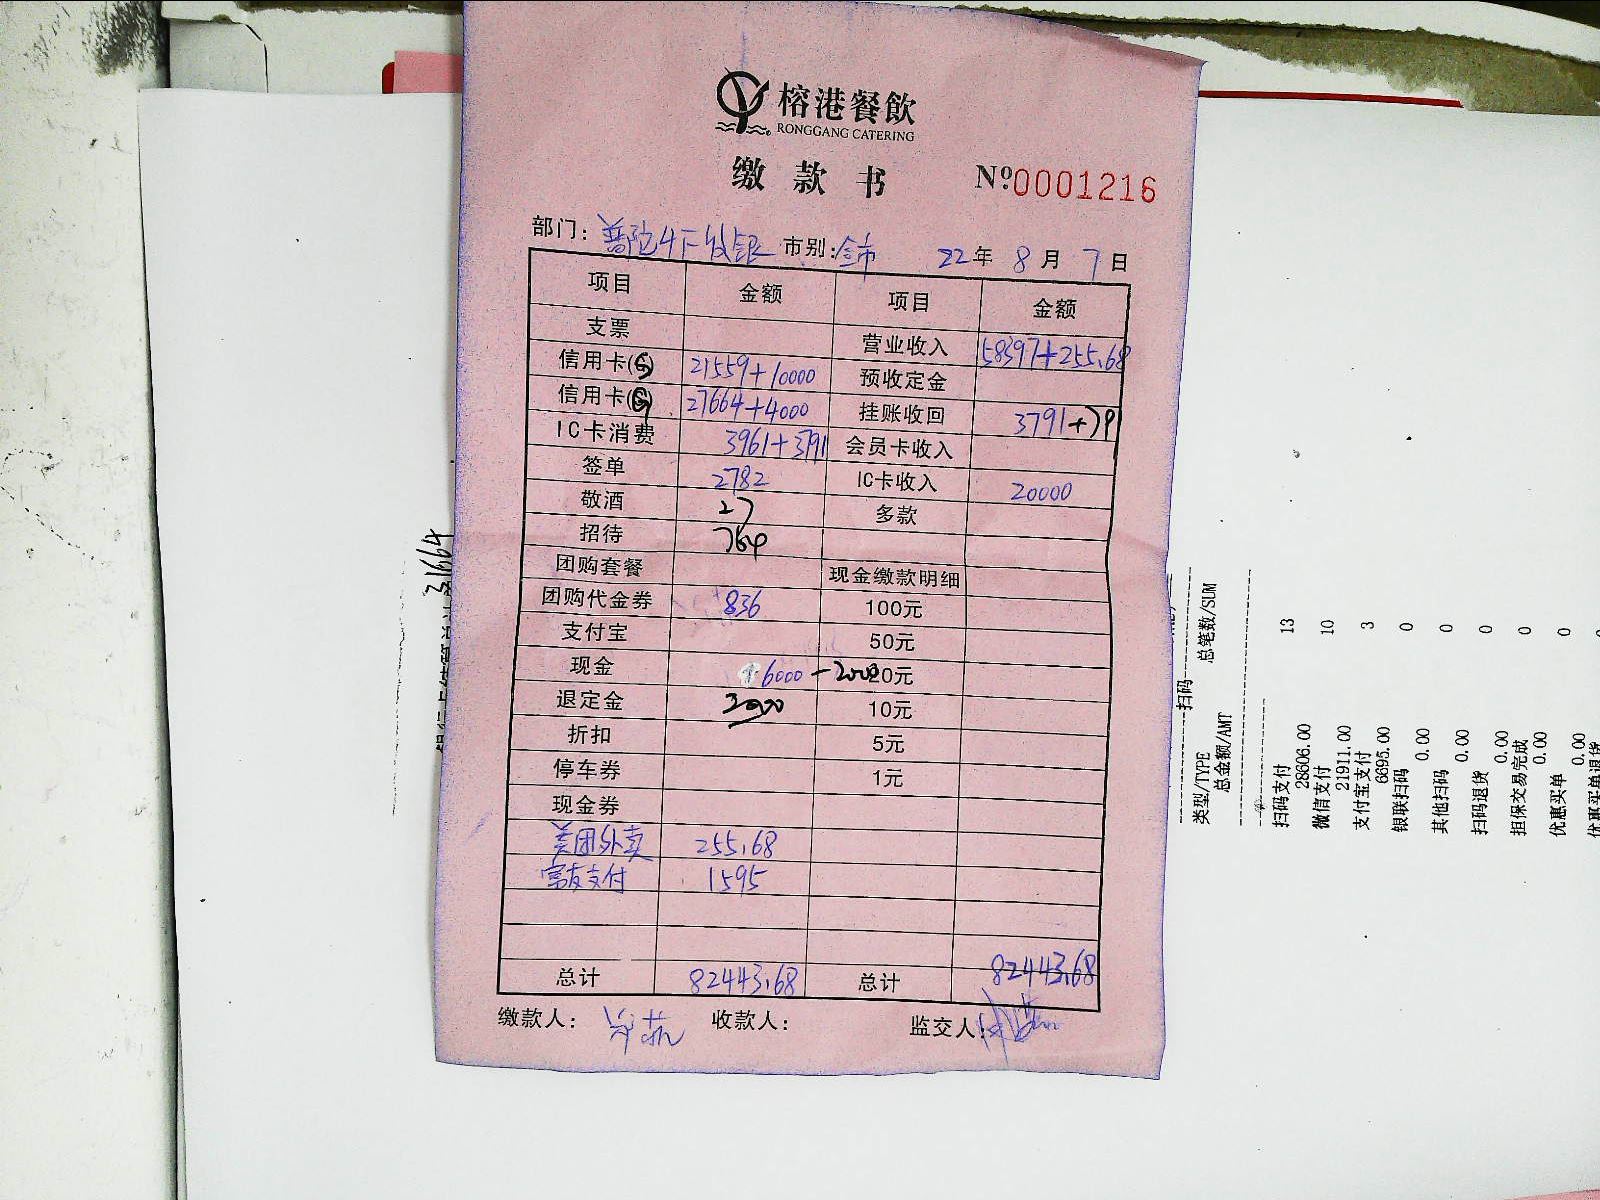 榕港餐飲
RONGGANG CATERING
缴款书 Nº0001216
部门: 普陀4F收银 市别: 全市 22年8月7日
项目 金额 项目 金额
支票 营业收入 58397+255.68
信用卡(S) 21559+10000 预收定金
信用卡(G) 27664+4000 挂账收回 3791+
IC卡消费 3961+3791 会员卡收入
签单 2782 IC卡收入 20000
敬酒 27 多款
招待 764
团购套餐 现金缴款明细
团购代金券 836 100元
支付宝 50元
现金 6000-2000 20元
退定金 10元
折扣 5元
停车券 1元
现金券
美团外卖 255.68
富友支付 1595
总计 82443.68 总计 82443.68
缴款人: 收款人: 监交人:
31664
扫码
类型/TYPE 总笔数/SUM
总金额/AMT
扫码支付 13
28606.00
微信支付 10
21911.00
支付宝支付 3
6695.00
银联扫码 0
0.00
其他扫码 0
0.00
扫码退货 0
0.00
担保交易完成 0
0.00
优惠买单 0
0.00
优惠买单退货